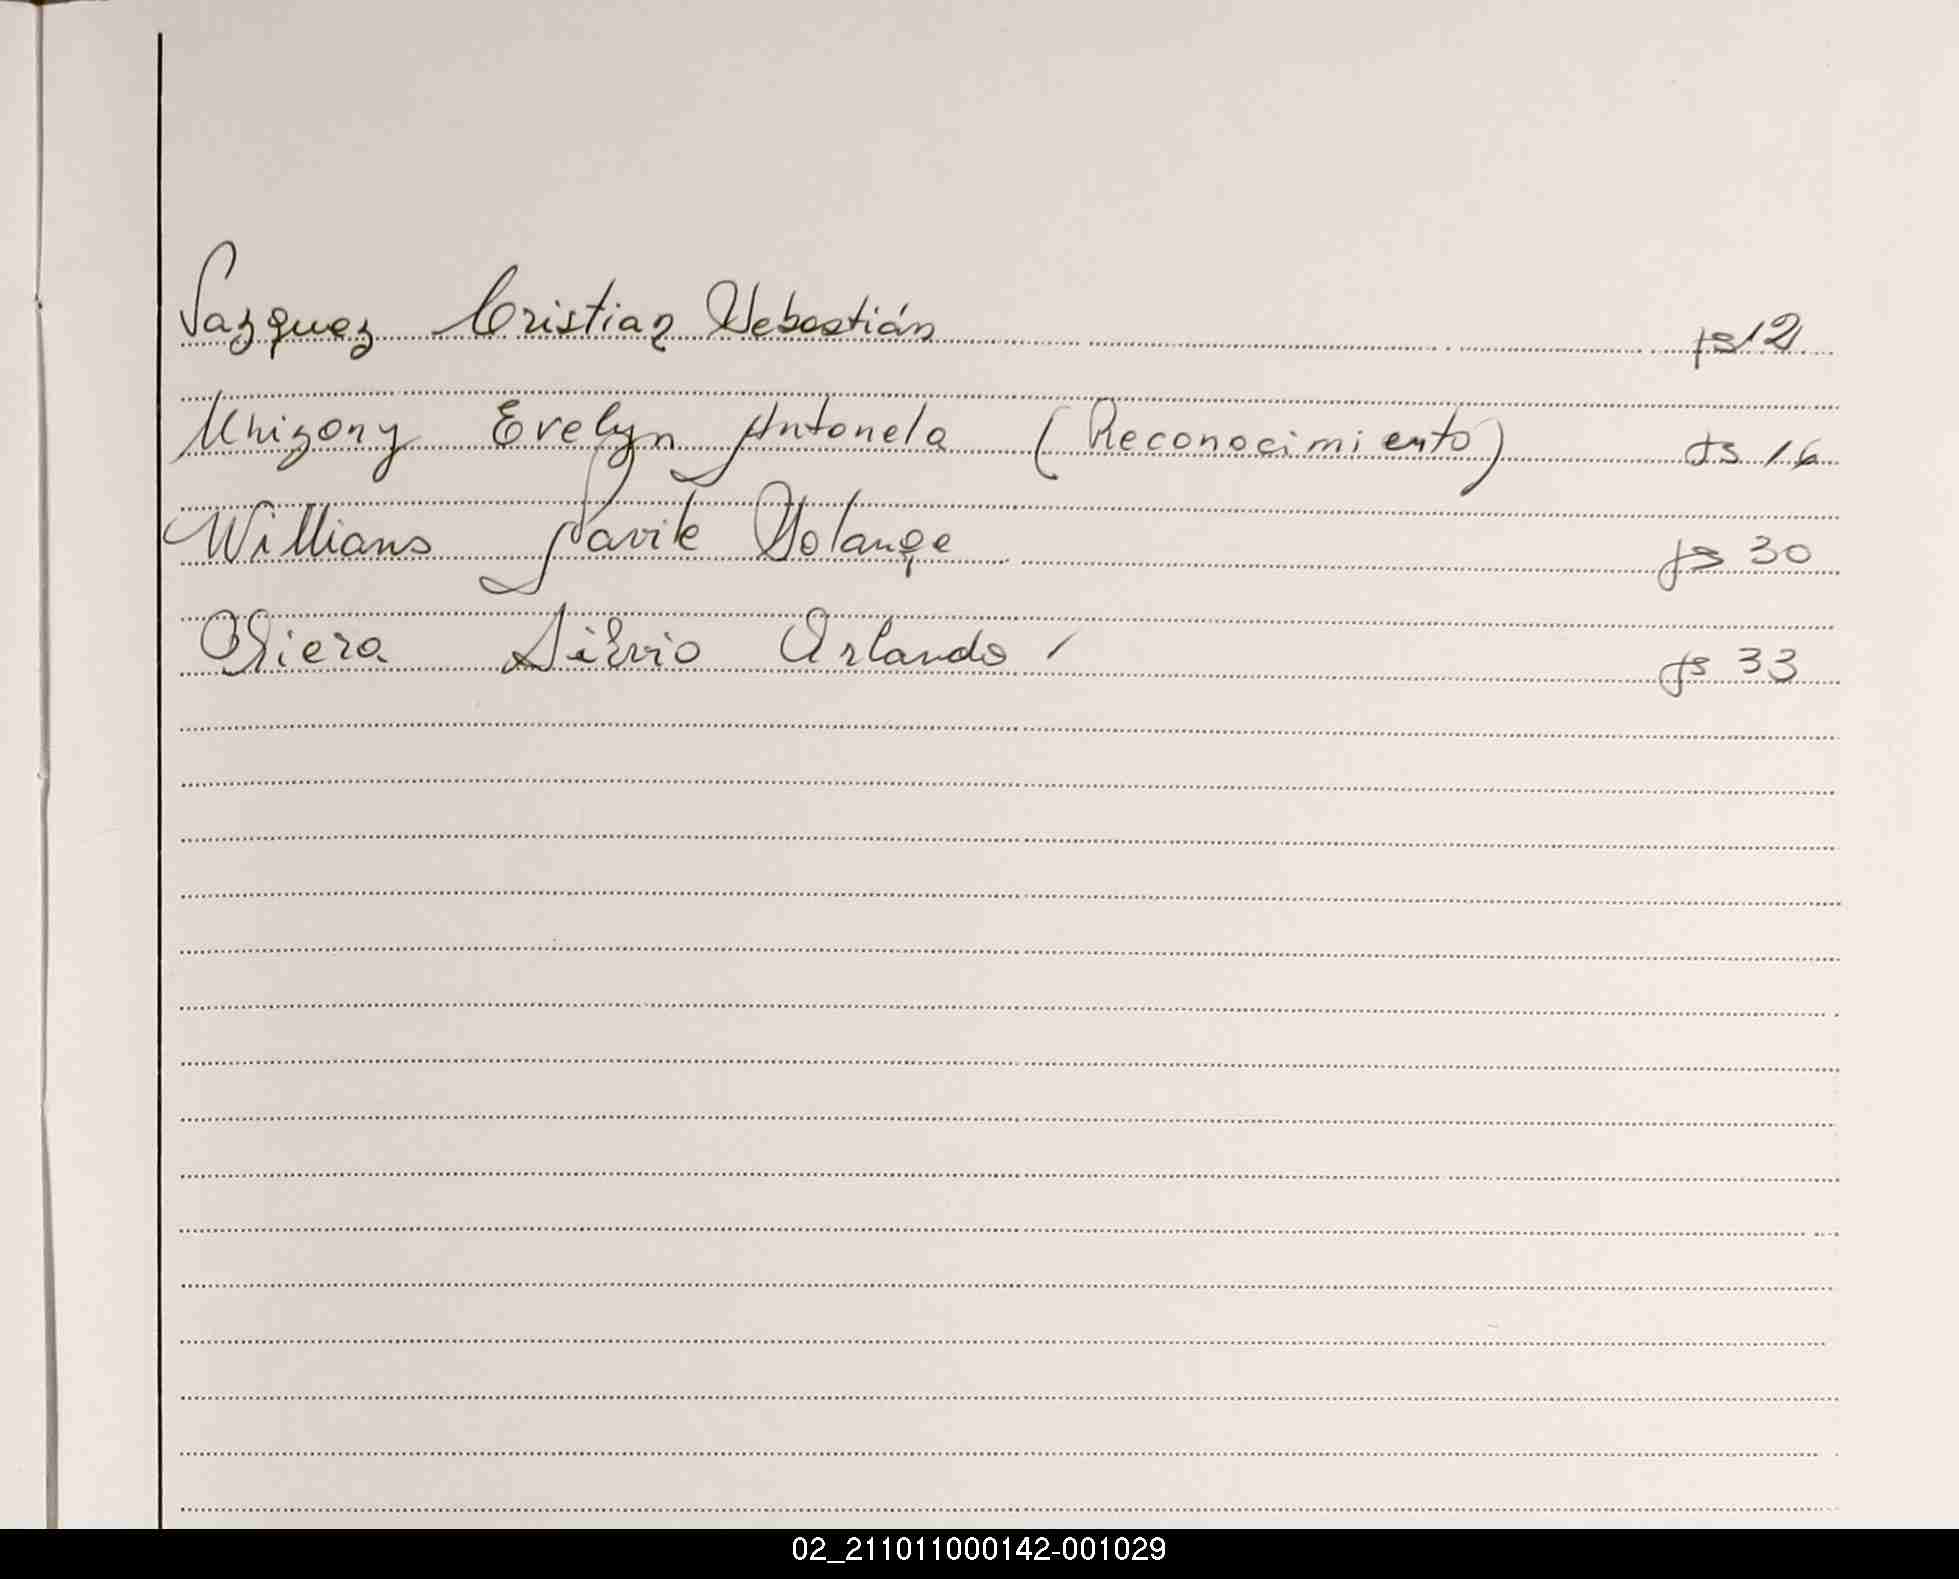 Vazquez Cristian Sebastián fs 12
Evelyn Antonela (Reconocimiento) fs 16
Willians Solange fs 30
Silvio Orlando fs 33
02_211011000142-001029